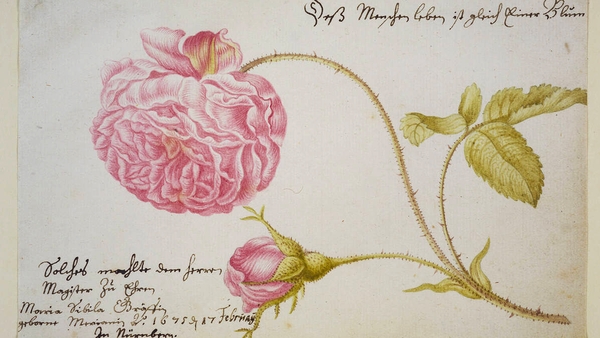 Deß Menschen leben ist gleich Einer Blum
Solches mahlte dem Herren
Magister Zu Ehren
Maria Sibila Gräffin
geborne Merianin A: 1675 d 17 Februarÿ
In Nürnberg.